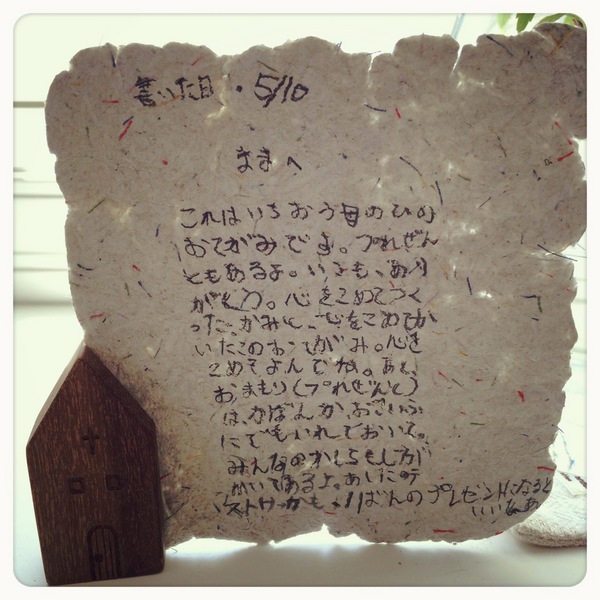 書いた日・5/10
ままへ
これはいちおう母のひの
おてがみです。プれぜん
ともあるよ。いつも、あり
がとう。心をこめてつく
った、かみに、心をこめてか
いたこのおてがみ。心を
こめてよんでね。あと、
おまもり(プれぜんと)
は、かばんか、おさいふ
にでもいれておいて。
みんなの
かいてあるよ。
ばんのプレゼントになると
いいなあ